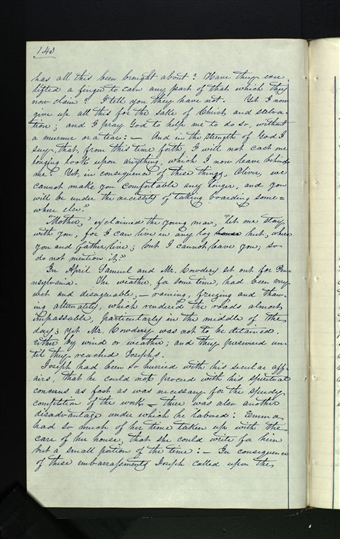 140
has all this been brought about? Have they ever
lifted a finger to earn any part of that which they
now claim? I tell you they have not. Yet I now
give up all this for the sake of Christ and salva-
tion; and I pray God to help me to do so, without
a murmur or a tear: — And in the strength of God I
say, that, from this time forth, I will not cast one
longing look upon anything, which I now leave behind
me! Yet, in consequence of these things, Oliver, we
cannot make you comfortable any longer, and you
will be under the necessity of taking boarding some-
where else."
"Mother," exclaimed the young man, "let me stay
with you; for I can live in any log house hut, where
you and father live; but I cannot leave you, so
do not mention it."
In April Samuel and Mr. Cowdery set out for Pen
nsylvania. The weather for some time, had been very
wet and disagreeable, — raining, freezing and thaw-
ing alternately, which rendered the roads almost
impassable, particularly in the middle of the
day; yet Mr. Cowdery was not to be detained,
either by wind or weather; and they persevered un-
til they reached Joseph's.
Joseph had been so hurried with his secular aff-
airs, that he could not proceed with his spiritual
concerns as fast as was necessary for the speedy
completion of the work — there was also another
disadvantage under which he labored: Emma
had so much of her time taken up with the
care of her house, that she could write for him
but a small portion of the time: — In consequence
of these embarrassments Joseph called upon the